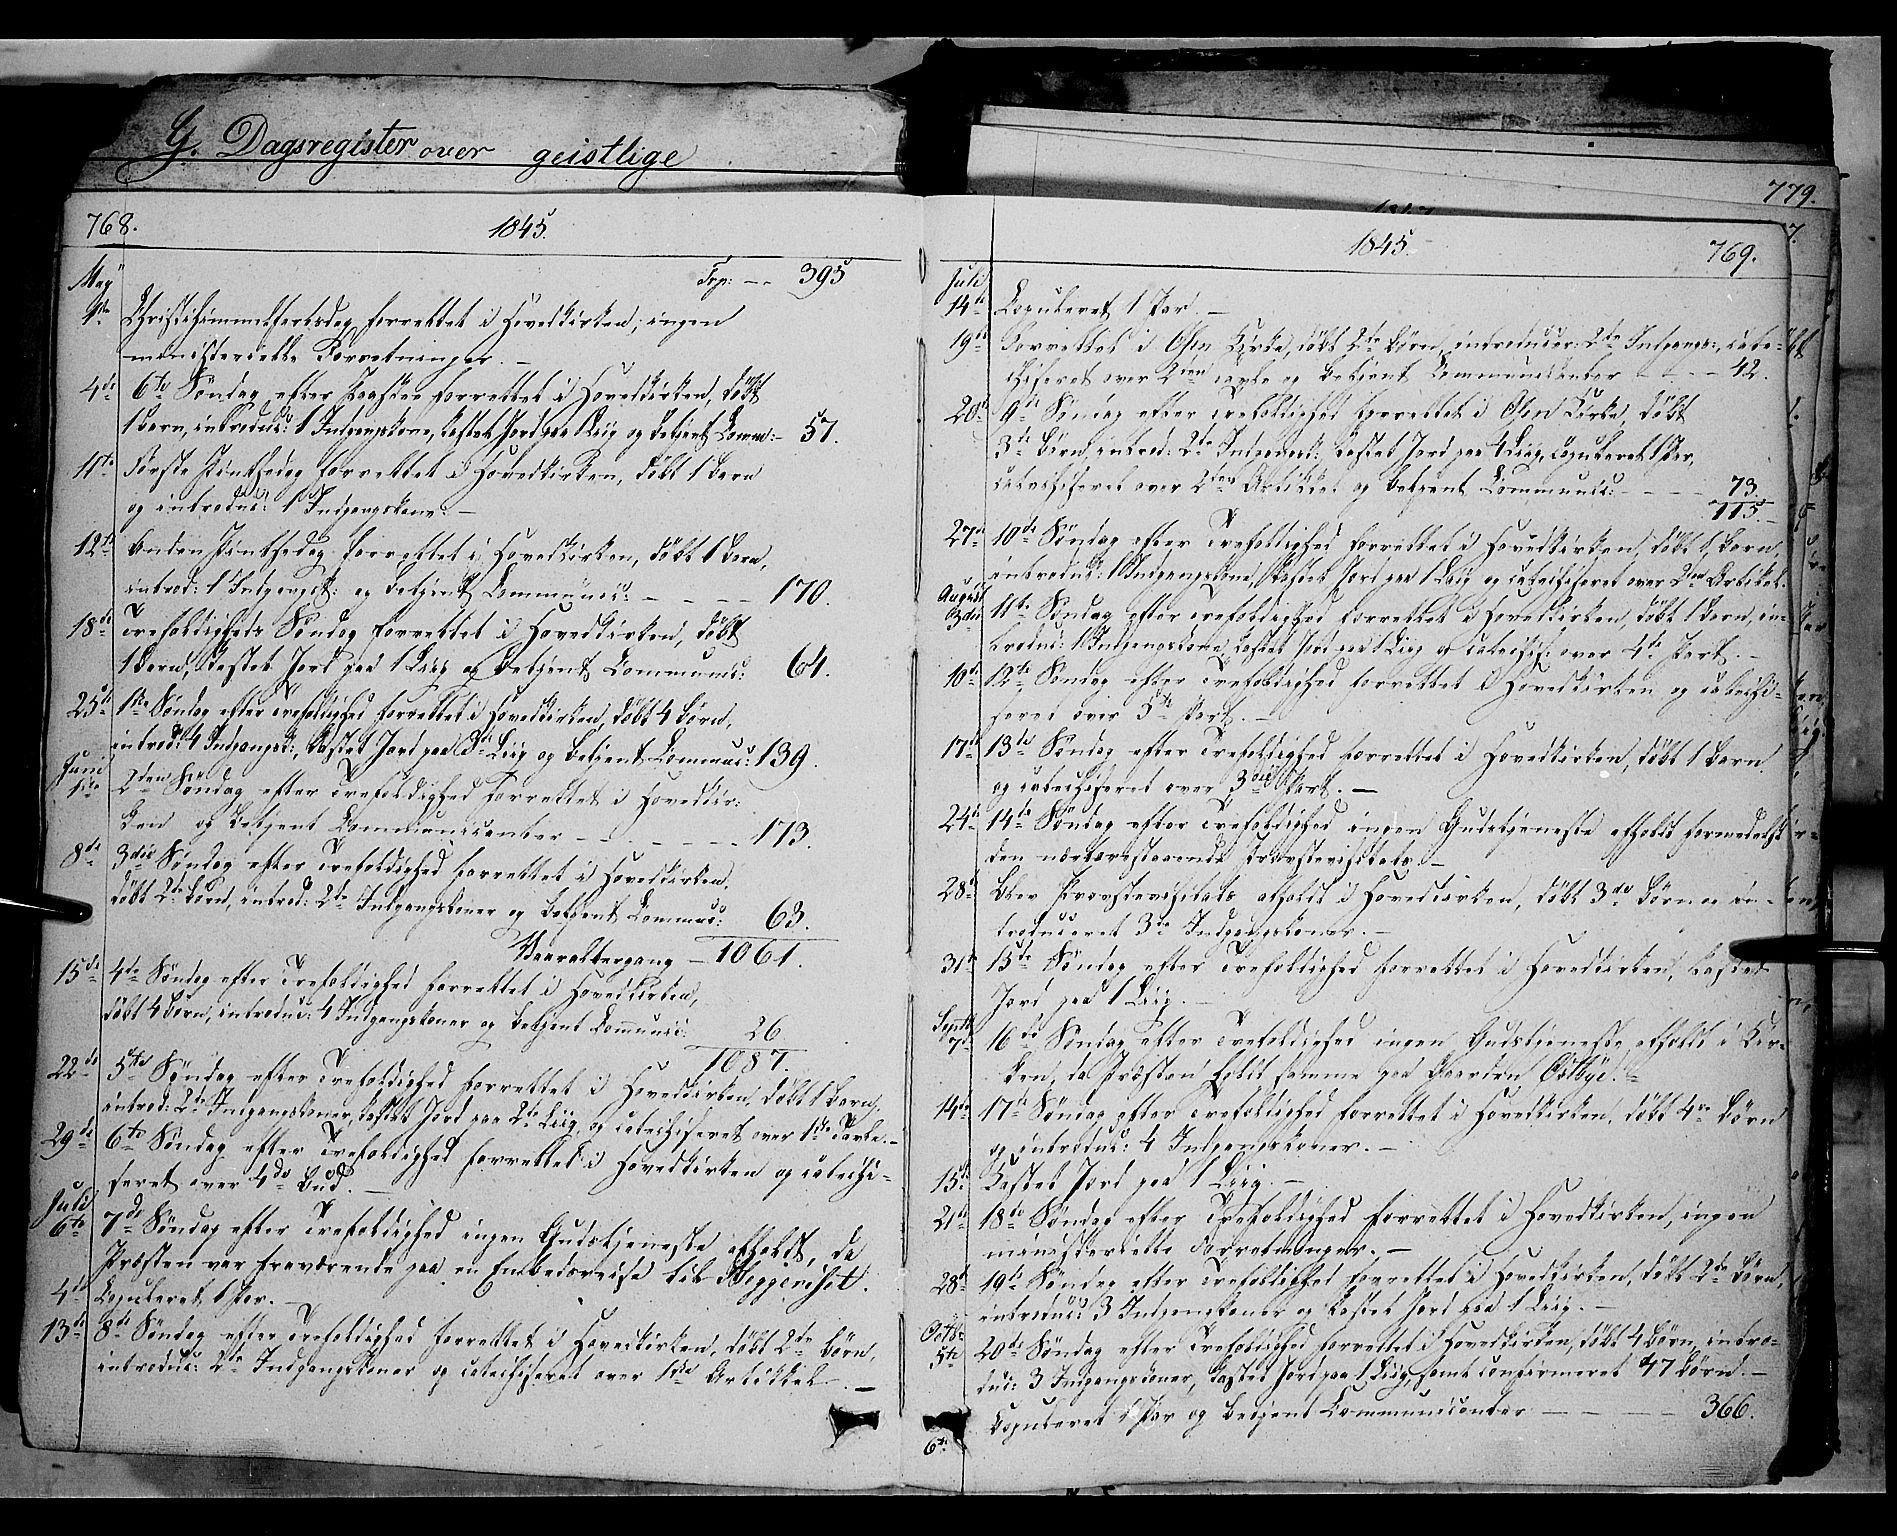 G. Dagsregister over geistlige
768.
1845.
May
Trp: — - 395
1ste Christi himmelfartsdag forrettet i Hovedkirken; ingen
ministerielle Forretninger. —
4de 6te Søndag efter Paaske forrettet i Hovedkirken, døbt
1 Barn, introduc: 1 Indgangskone, kastet Jord paa 1 Liig og betjent Comm: - 57.
11te Første Pintsedag forrettet i Hovedkirken, døbt 1 Barn
og introduc: 1 Indgangskone. —
12te Anden Pintsedag forrettet i Hovedkirken, døbt 1 Barn,
introd: 1 Indgangsk: og betjent Communic: - - - - 170.
18de Trefoldigheds Søndag forrettet i Hovedkirken, døbt
1 Barn, kastet Jord paa 1 Liig og betjent Communic: 64.
25de 1ste Søndag efter Trefoldighed forrettet i Hovedkirken, døbt 4 Børn,
introd: 4 Indgangsk:, kastet Jord paa 3de Liig og betjent Commuc: 139.
Juni
1ste 2den Søndag efter Trefoldighed forrettet i Hovedkir-
ken og betjent Communicanter - - - - - - 173.
8de 3die Søndag efter Trefoldighed forrettet i Hovedkirken,
døbt 2de Børn, introd: 2de Indgangskoner og betjent Commuc: 63.
Vaaraltergang — 1061.
15de 4de Søndag efter Trefoldighed forrettet i Hovedkirken,
døbt 4 Børn, introduc: 4 Indgangskoner og betjent Communic: 26
1087.
22de 5te Søndag efter Trefoldighed forrettet i Hovedkirken, døbt 1 Barn,
introd: 2de Indgangskoner, kastet Jord paa 2de Liig, og catechiseret over 1ste Tavle. —
29de 6te Søndag efter Trefoldighed forrettet i Hovedkirken og catechi-
seret over 4de Bud. —
Juli
6te 7de Søndag efter Trefoldighed ingen Gudstjeneste afholdt, da
Præsten var fraværende paa en Embedsreise til
4de Copuleret 1 Par. —
13de 8de Søndag efter Trefoldighed forrettet i Hovedkirken, døbt 2de Børn,
introduc: 2de Indgangskoner og catechiseret over 1ste Artikkel. —
779.
1847
7.
1845.
769.
Juli
14de Copuleret 1 Par. —
19de Forrettet i Osen Kirke, døbt 2de Børn, introducer: 2de Indgangs:, cate-
chiseret over 2den Tavle og betjent Communicanter - - - 42.
20de 9de Søndag efter Trefoldighed forrettet i Osen Kirke, døbt
3de Børn, introd: 2de Indgangsk:, kastet Jord paa 4 Liig, Copuleret 1 Par,
catechiseret over 2den Artikkel og betjent Communic: - - - - 73.
115. -
27de 10de Søndag efter Trefoldighed forrettet i Hovedkirken, døbt 1 Barn,
introduc: 1 Indgangskone, kastet Jord paa 1 Liig og catechiseret over 2den Artikel.
August
3die 11te Søndag efter Trefoldighed forrettet i Hovedkirken, døbt 1 Barn, in-
troduc: 1 Indgangskone, kastet Jord paa 1 Liig og catechis: over 4de Part. —
10de 12te Søndag efter Trefoldighed forrettet i Hovedkirken og catechi-
seret over 5te Part. —
17de 13de Søndag efter Trefoldighed forrettet i Hovedkirken, døbt 1 Barn
og catechiseret over 3die Part. —
24de 14de Søndag efter Trefoldighed ingen Gudstjeneste afholdt formedelst
den nærforestaaende Provstevisitats. —
28de Blev Provstevisitats afholdt i Hovedkirken, døbt 3de Børn og in-
troduceret 3de Indgangskoner. —
31te 15de Søndag efter Trefoldighed forrettet i Hovedkirken, kastet
Jord paa 1 Liig. —
Septbr
7de 16de Søndag efter Trefoldighed ingen Gudstjeneste afholdt i Kir-
ken, da Præsten holdt samme paa Gaarden Østbye. —
14de 17de Søndag efter Trefoldighed forrettet i Hovedkirken, døbt 4re Børn
og introduc: 4 Indgangskoner. —
15de Kastet Jord paa 1 Liig. —
21de 18de Søndag efter Trefoldighed forrettet i Hovedkirken, ingen
ministerielle Forretninger. —
28de 19de Søndag efter Trefoldighed forrettet i Hovedkirken, døbt 2de Børn,
introduc: 3 Indgangskoner og kastet Jord paa 1 Liig. —
Octbr
5te 20de Søndag efter Trefoldighed forrettet i Hovedkirken, døbt 4 Børn, intro-
duc: 3 Indgangskoner, kastet Jord paa 1 Liig, samt confirmeret 47 Børn. —
6te Copuleret 1 Par og betjent Communicanter - - - - - 366.